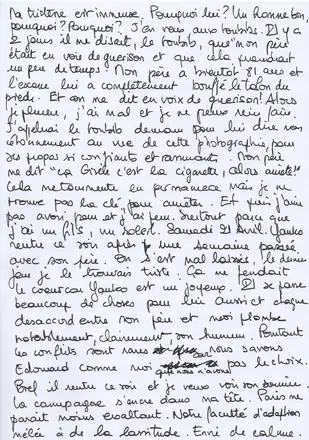 Ma tristesse est immense, Pourquoi lui? Un homme bon,
pourquoi? Pourquoi? J'en veux aux toubibs. Il y a
2 jours il me disait, le toubib, que "mon père
était en voie de guérison et que cela prendrait
un peu de temps". Mon père a bientôt 81 ans et
l'escarre lui a complètement bouffé le talon du
pied. Et on me dit en voie de guérison! Alors
je pleure, j'ai mal et je ne peux rien faire.
J'appellerai le toubib demain pour lui dire mon
étonnement au vue de cette photographie, pour
ses propos si confiants et rassurants. Mon père
me dit "La Gisèle c'est la cigarette, alors arrête!"
Cela me tourmente en permanence mais je ne
trouve pas la clé, pour arrêter. Et puis j'ai
pas avoir peur et j'ai peur. Surtout parce que
j'ai un fils, un soleil. Samedi 21 Avril. Yanko
rentre ce soir après une semaine passée
avec son père. On s'est mal laissés, le dernier
jour je le trouvais triste. Ça me fendait
le coeur car Yanko est un joyeux. Il se passe
beaucoup de choses pour lui aussi et chaque
désaccord entre son père et moi plombe
notablement, clairement, son humeur. Pourtant
les conflits sont rares car nous savons
Edouard comme moi que nous n'avons pas le choix.
Bref il rentre ce soir et je veux voir son sourire.
La campagne s'ancre dans ma tête. Paris me
paraît moins exaltant. Notre faculté d'adaption
mêlée à de la lassitude. Envie de calme.